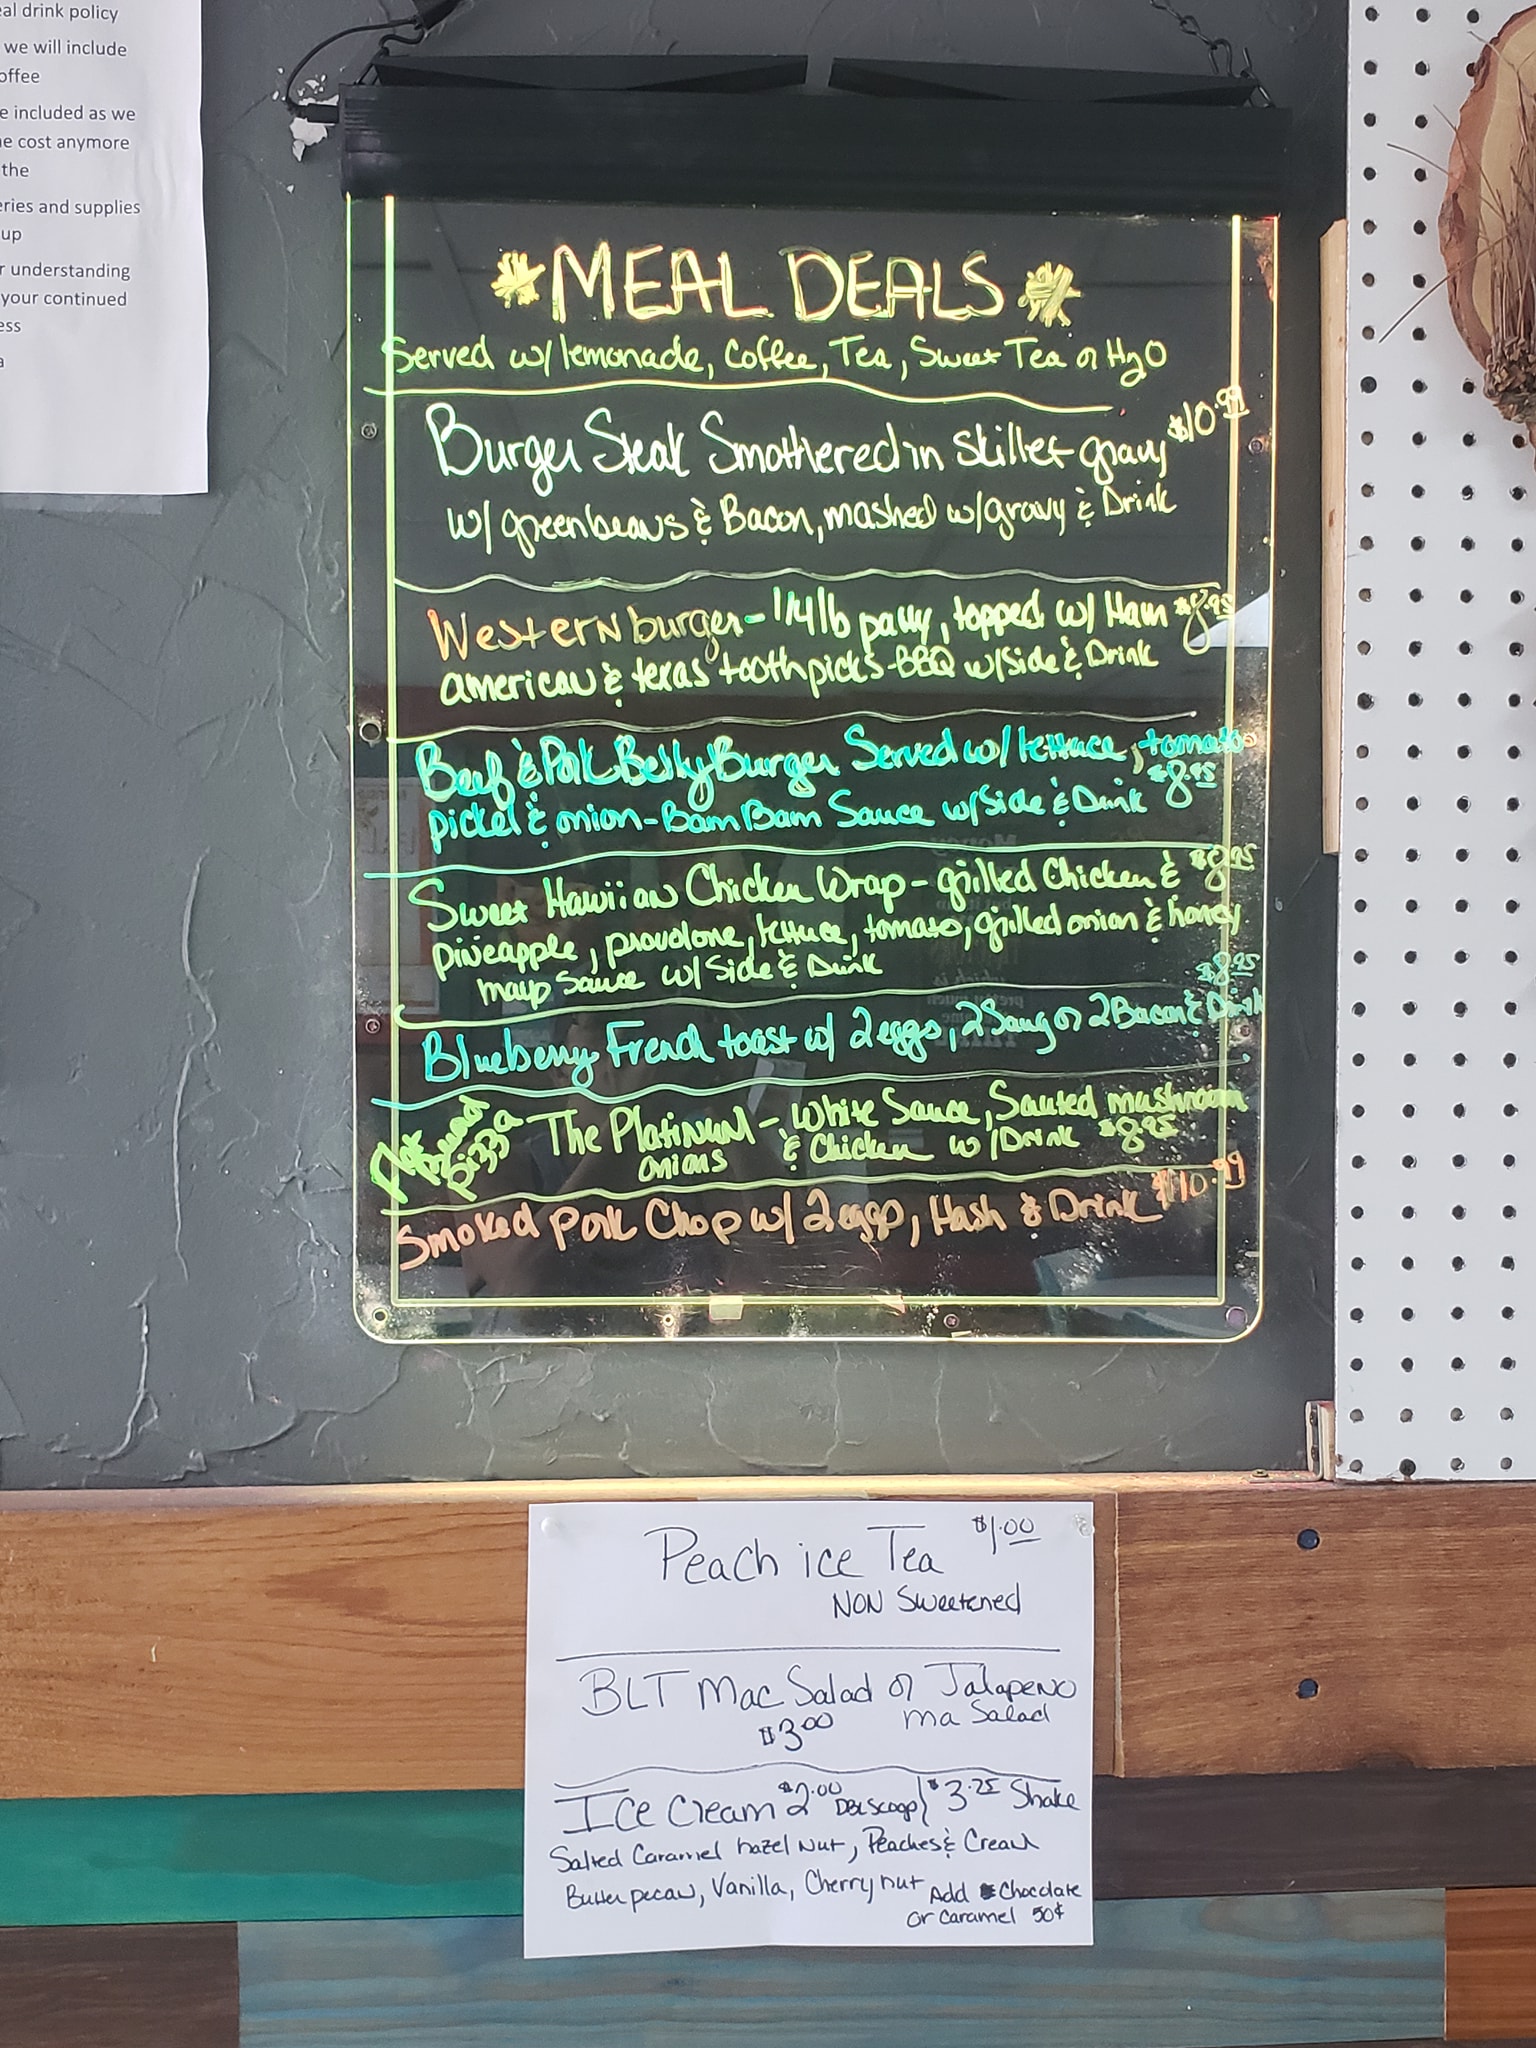 al drink policy
we will include
offee
e included as we
e cost anymore
the
eries and supplies
up
r understanding
your continued
ess
a
MEAL DEALS
Served w/ lemonade, Coffee, Tea, Sweet Tea or H2O
Burger Steak Smothered in skillet gravy $10.99
w/ greenbeans & Bacon, mashed w/gravy & Drink
Western burger - 1/4 lb patty, topped w/ Ham $8.95
american & texas toothpicks - BBQ w/Side & Drink
Beef & Pork Belly Burger Served w/ lettuce, tomato
pickel & onion - Bam Bam Sauce w/Side & Drink $8.95
Sweet Hawiian Chicken Wrap - grilled Chicken & $8.95
pineapple, provolone, lettuce, tomato, grilled onion & honey
mayo Sauce w/ Side & Drink
$8.95
Blueberry French toast w/ 2 eggs, 2 Saug or 2 Bacon & Drink
pizza - The Platinum - White Sauce, Sauted mushroom
onions & Chicken w/Drink $8.95
Smoked Pork Chop w/ 2 eggs, Hash & Drink $10.99
Peach ice Tea $1.00
NON Sweetened
BLT Mac Salad or Jalapeno
$3.00 ma Salad
Ice Cream $2.00 DBL Scoop / $3.25 Shake
Salted Caramel hazel Nut, Peaches & Cream
Butter pecan, Vanilla, Cherry nut
Add Chocolate
or Caramel 50¢